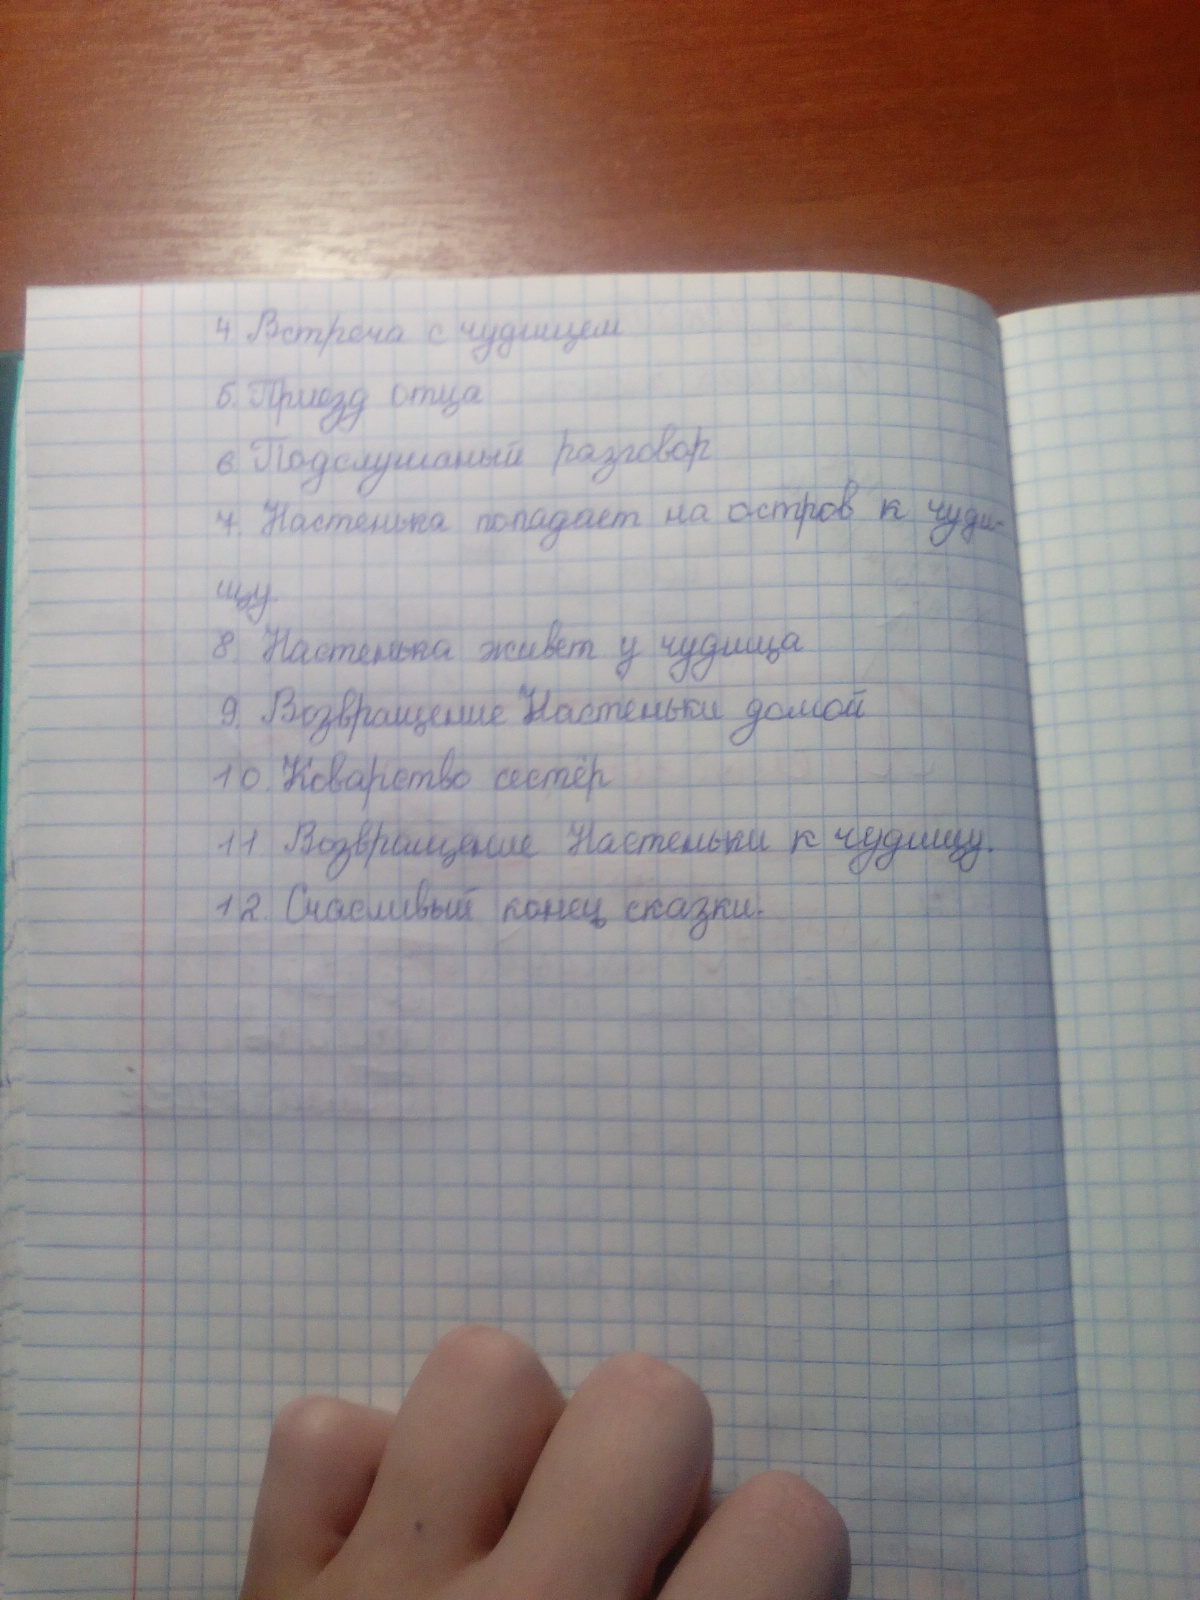 4. Встреча с чудищем
5. Приезд отца
6. Подслушаный разговор
7. Настенька попадает на остров к чуди-
щу.
8. Настенька живет у чудища
9. Возвращение Настеньки домой
10. Коварство сестёр
11 Возвращение Настеньки к чудищу.
12. Счасливый конец сказки.